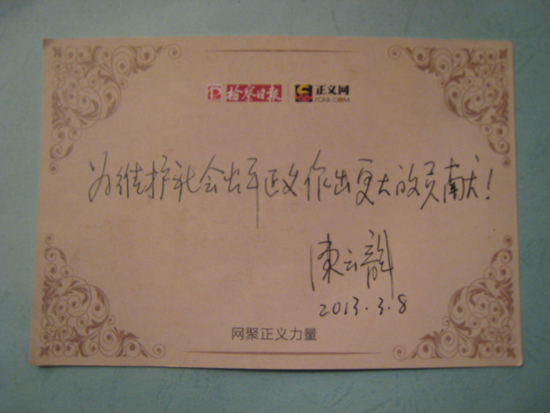 检察日报 正义网
JCRB.COM
为维护社会公平正义作出更大的贡献！
陈云龙
2013.3.8
网聚正义力量